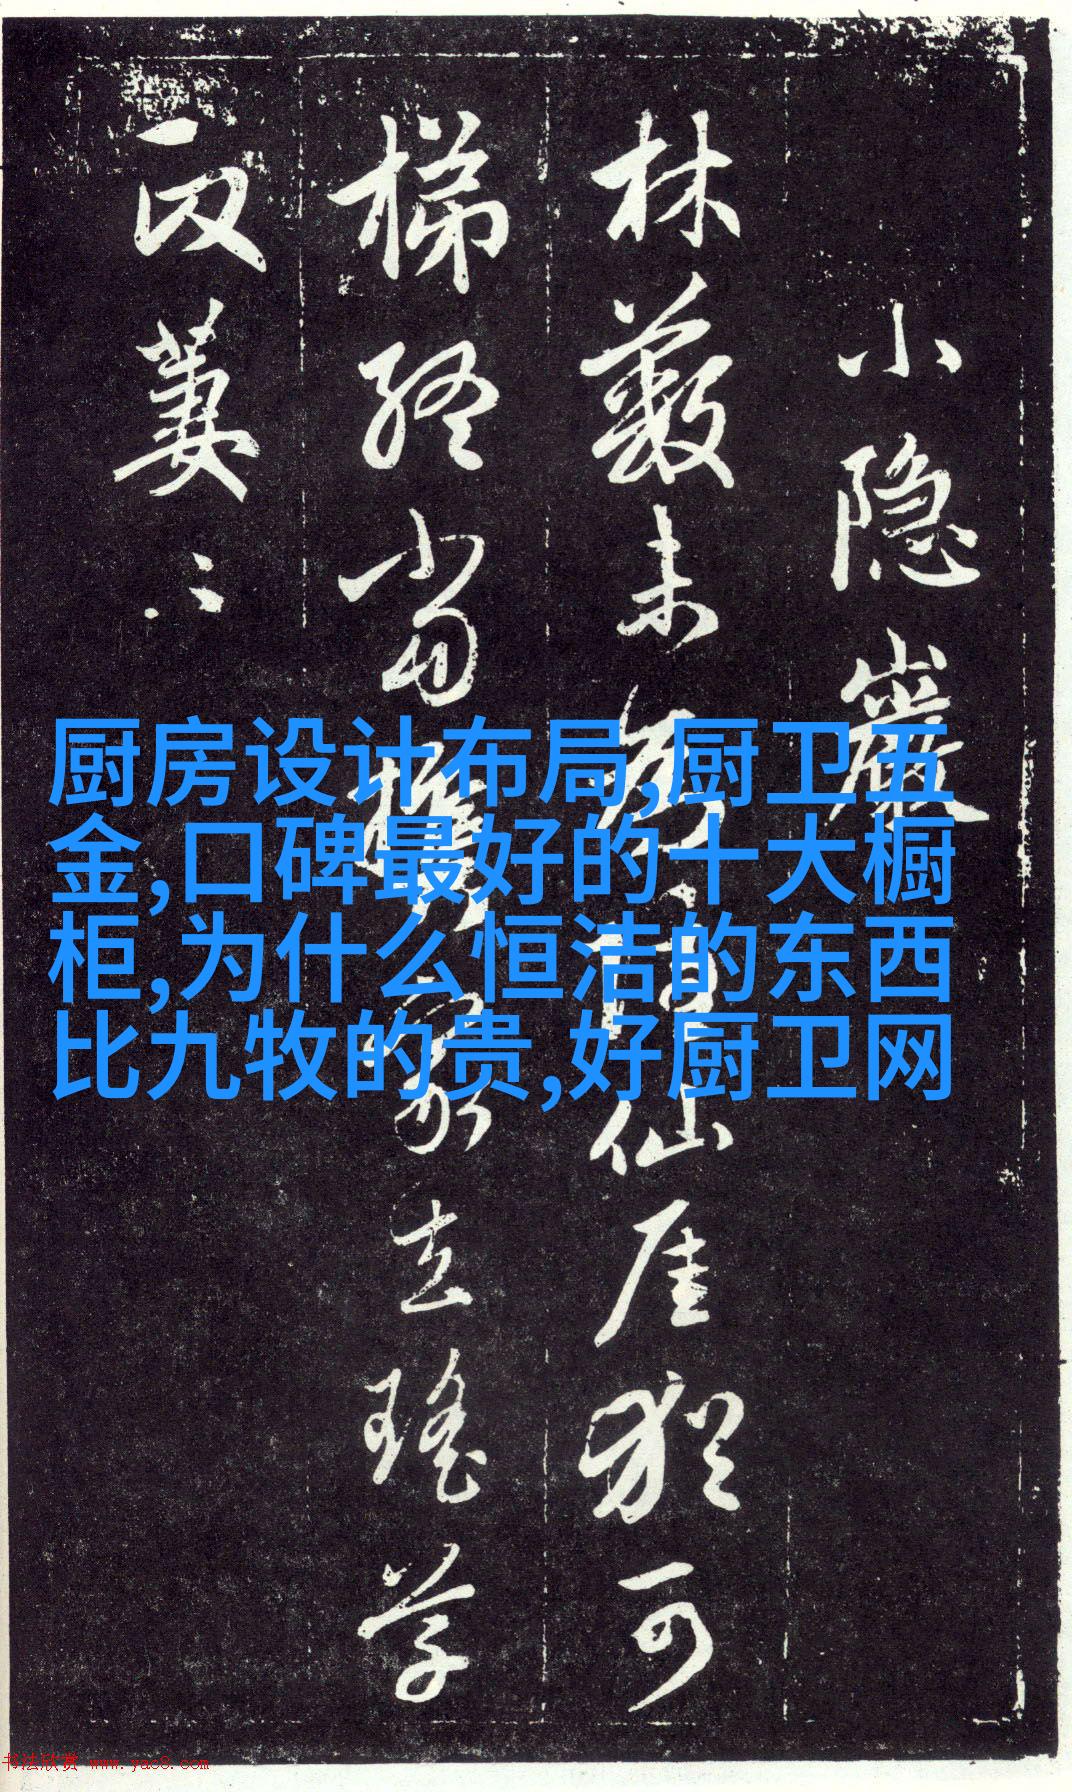 小隐巖
林薮未仙厓犹可
梯终当家去瑶草
政萋〻
厨房设计布局,厨卫五
金,口碑最好的十大橱
柜,为什么恒洁的东西
比九牧的贵,好厨卫网
书法欣赏 www.yac8.com